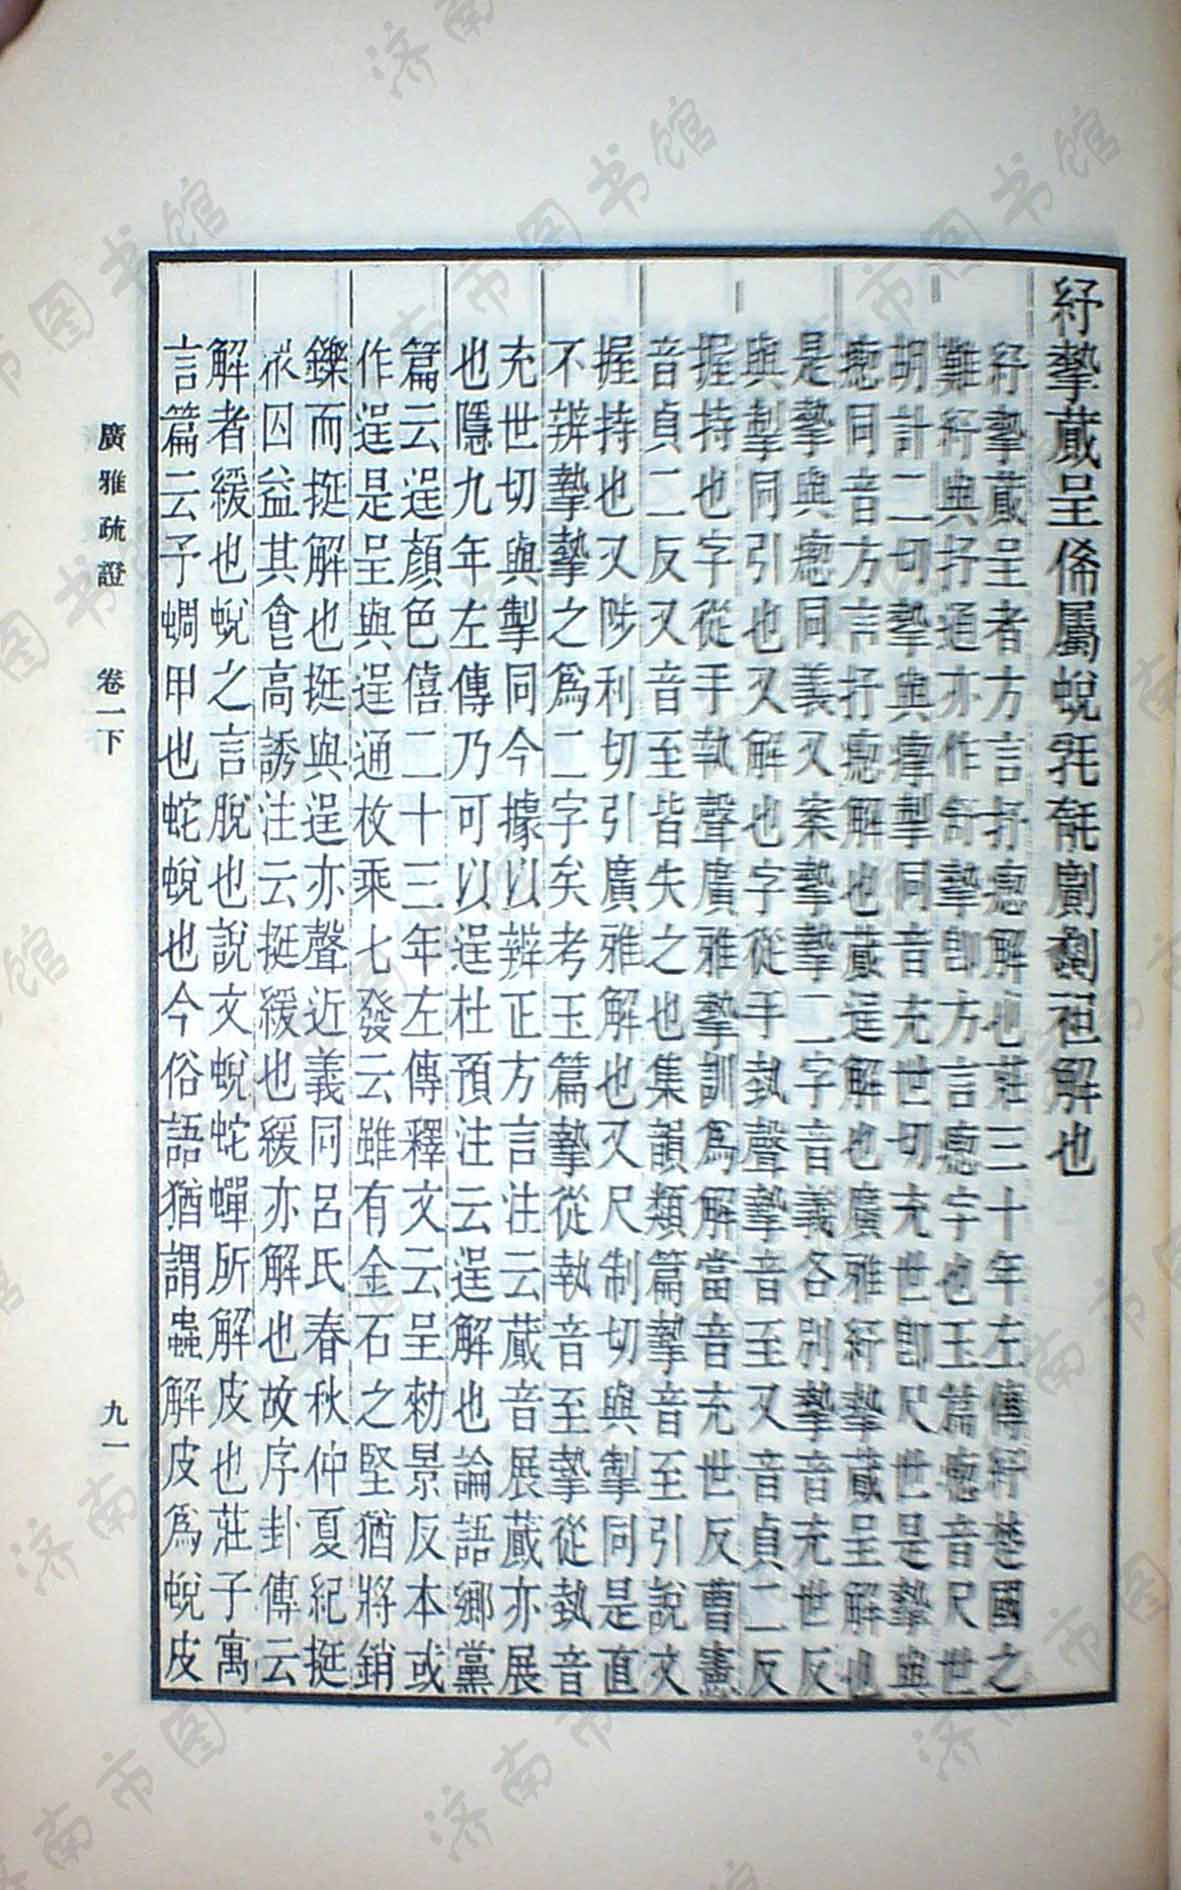 紓摯蕆呈俙屬蛻毻毤劆劙袒解也
紓摯蕆呈者方言抒瘛解也莊三十年左傳紓楚國之
難紓與抒通亦作舒摯卽方言瘛字也玉篇瘛音尺世
胡計二切摯與㨖掣同音充世切充世卽尺世是摯與
瘛同音方言抒瘛解也蕆逞解也廣雅紓摯蕆呈解也
是摯與瘛同義又案摯摯二字音義各別摯音充世反
與掣同引也又解也字從手埶聲摯音至又音貞二反
握持也字從手執聲廣雅摯訓爲解當音充世反曹憲
音貞二反又音至皆失之也集韻類篇摯音至引說文
握持也又陟利切引廣雅解也又尺制切與掣同是直
不辨摯摯之爲二字矣考玉篇摯從執音至摯從埶音
充世切與掣同今據以辨正方言注云蕆音展蕆亦展
也隱九年左傳乃可以逞杜預注云逞解也論語鄉黨
篇云逞顏色僖二十三年左傳釋文云呈勑景反本或
作逞是呈與逞通枚乘七發云雖有金石之堅猶將銷
鑠而挺解也挺與逞亦聲近義同呂氏春秋仲夏紀挺
衆囚益其食高誘注云挺緩也緩亦解也故序卦傳云
解者緩也蛻之言脫也說文蛻蛇蟬所解皮也莊子寓
言篇云予蜩甲也蛇蛻也今俗語猶謂蟲解皮爲蛻皮
廣雅疏證 卷一下 九一
济南市图书馆